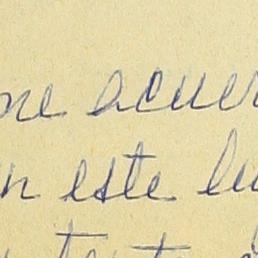 me acuer
n este lu